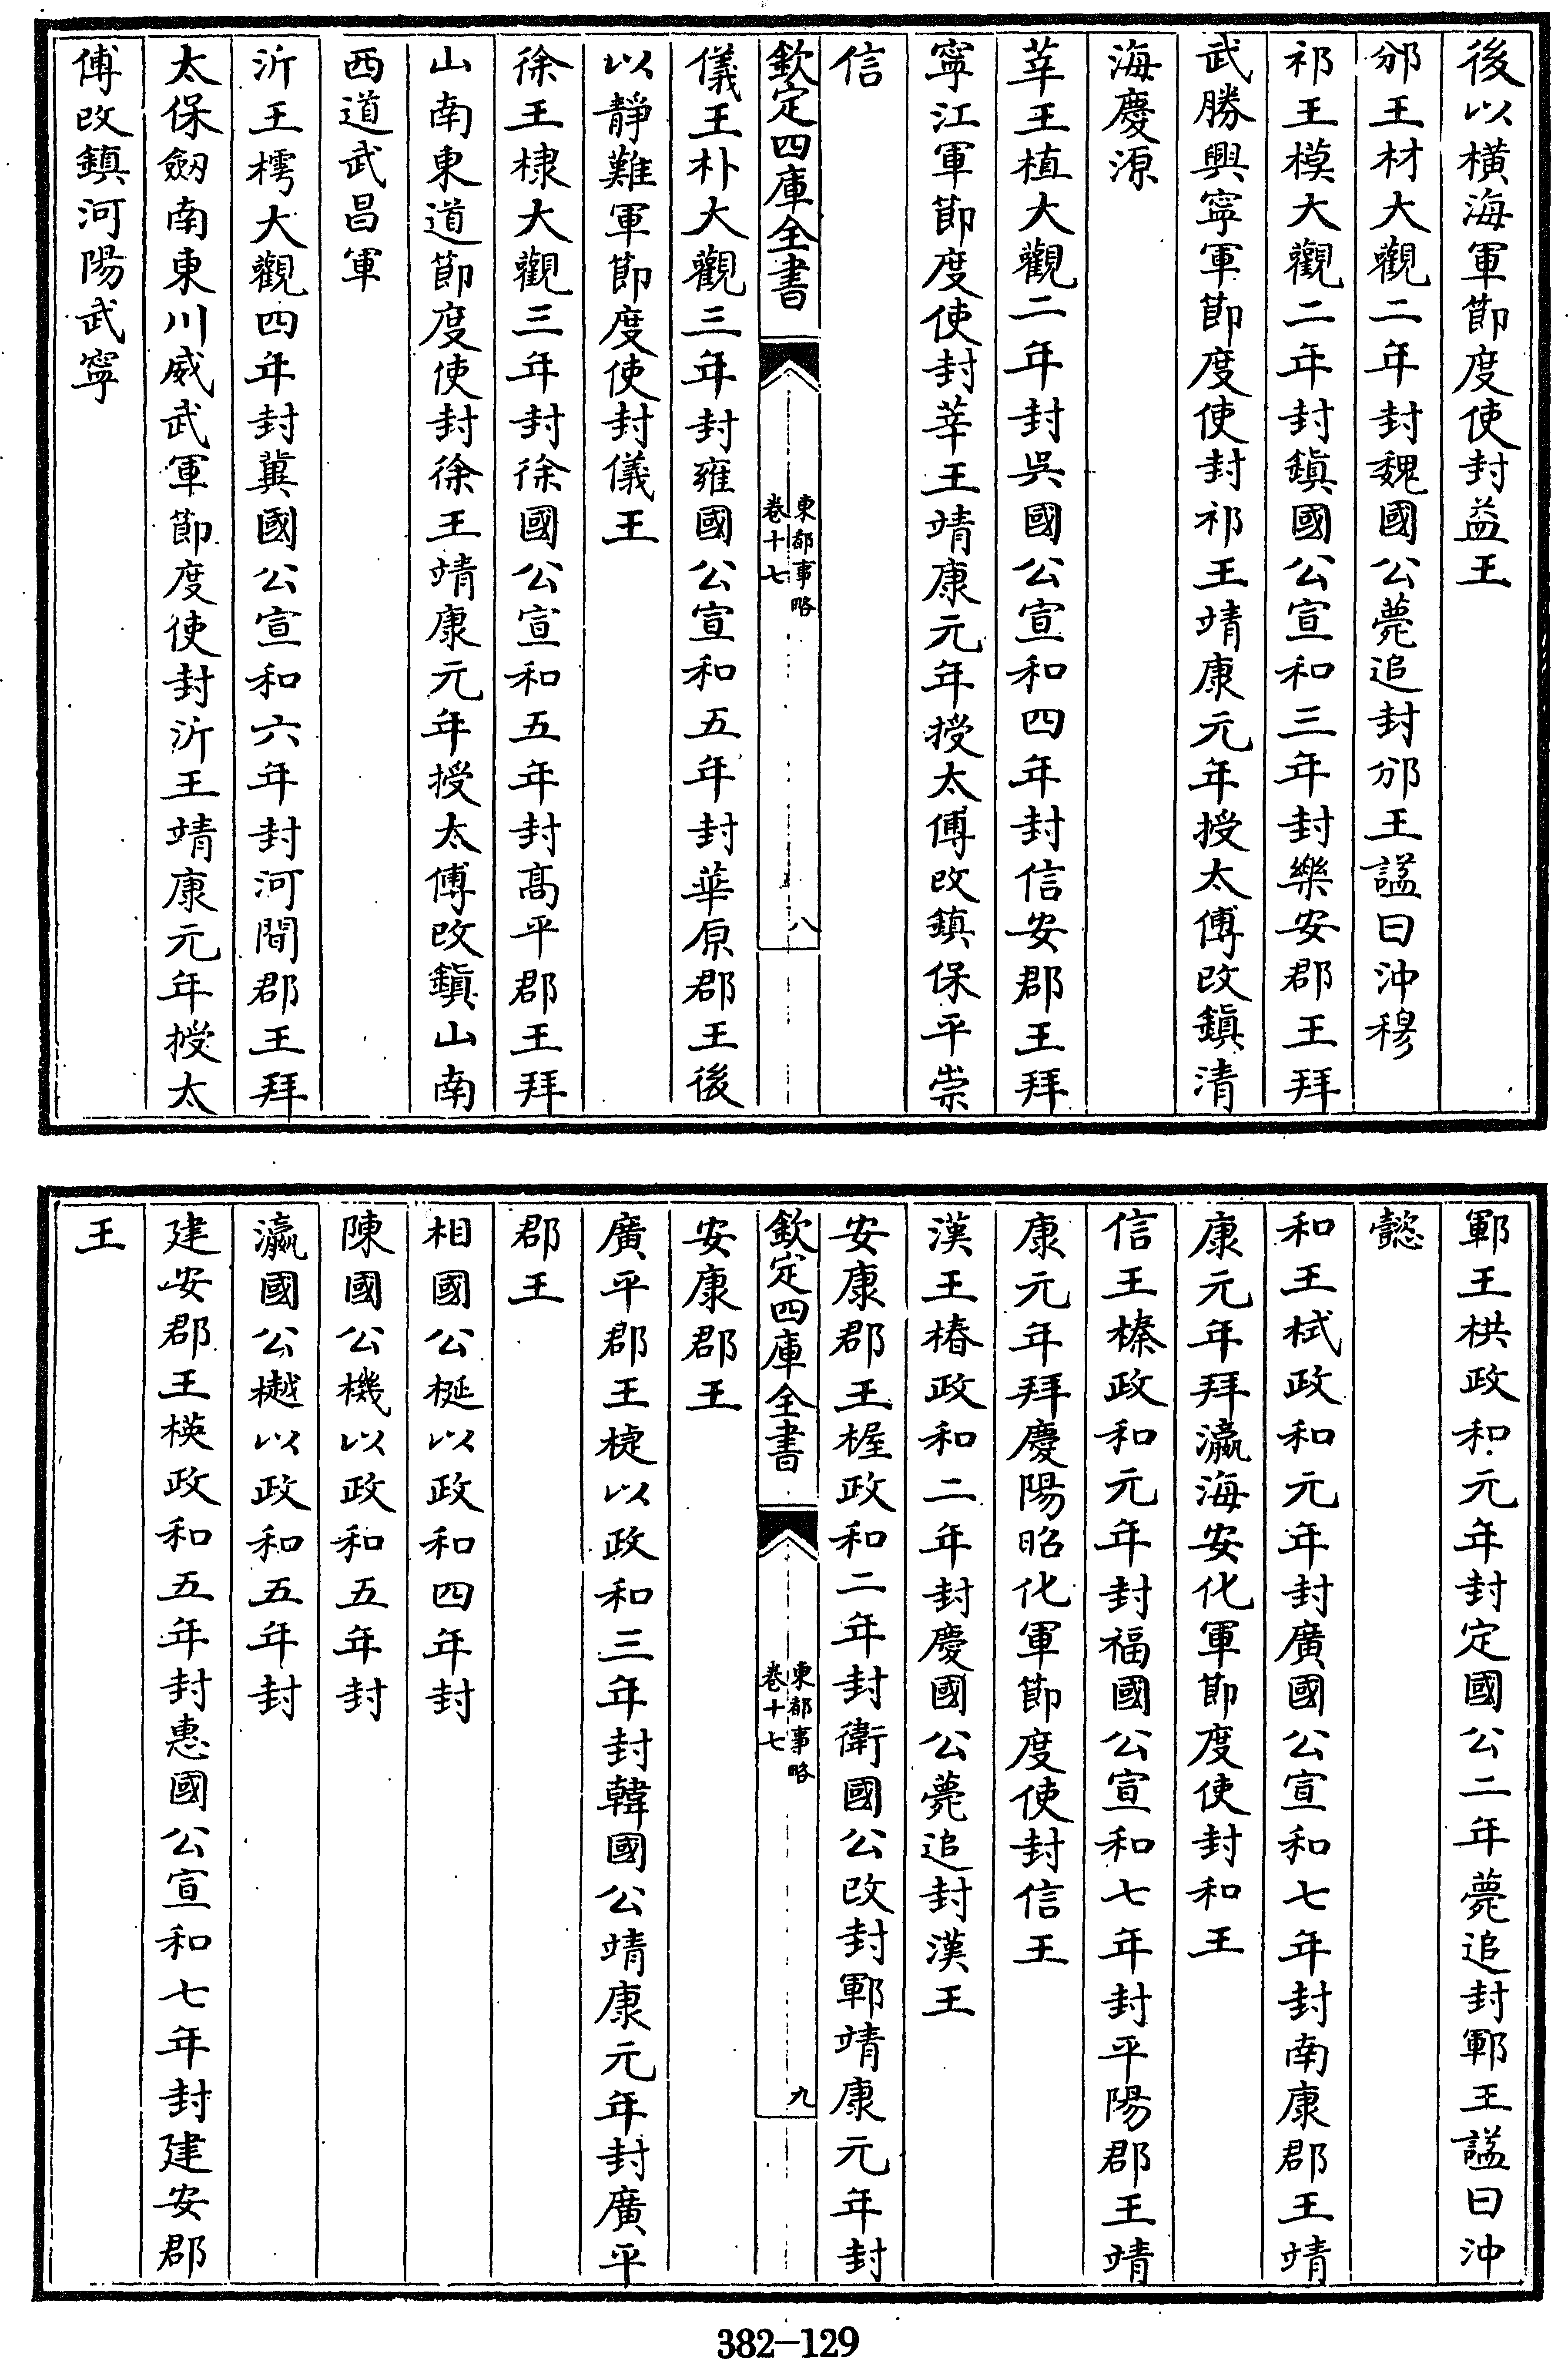 後以橫海軍節度使封益王
邠王材大觀二年封魏國公薨追封邠王諡曰沖穆
祁王模大觀二年封鎮國公宣和三年封樂安郡王拜
武勝興寧軍節度使封祁王靖康元年授太傅改鎮清
海慶源
莘王植大觀二年封吳國公宣和四年封信安郡王拜
寧江軍節度使封莘王靖康元年授太傅改鎮保平崇
信
欽定四庫全書
東都事略
卷十七
八
儀王朴大觀三年封雍國公宣和五年封華原郡王後
以靜難軍節度使封儀王
徐王棣大觀三年封徐國公宣和五年封高平郡王拜
山南東道節度使封徐王靖康元年授太傅改鎮山南
西道武昌軍
沂王樗大觀四年封冀國公宣和六年封河間郡王拜
太保劔南東川威武軍節度使封沂王靖康元年授太
傅改鎮河陽武寧
鄆王栱政和元年封定國公二年薨追封鄆王諡曰沖
懿
和王栻政和元年封廣國公宣和七年封南康郡王靖
康元年拜瀛海安化軍節度使封和王
信王榛政和元年封福國公宣和七年封平陽郡王靖
康元年拜慶陽昭化軍節度使封信王
漢王椿政和二年封慶國公薨追封漢王
安康郡王楃政和二年封衛國公改封鄆靖康元年封
欽定四庫全書
東都事略
卷十七
九
安康郡王
廣平郡王楗以政和三年封韓國公靖康元年封廣平
郡王
相國公梴以政和四年封
陳國公機以政和五年封
瀛國公樾以政和五年封
建安郡王楧政和五年封惠國公宣和七年封建安郡
王
382-129